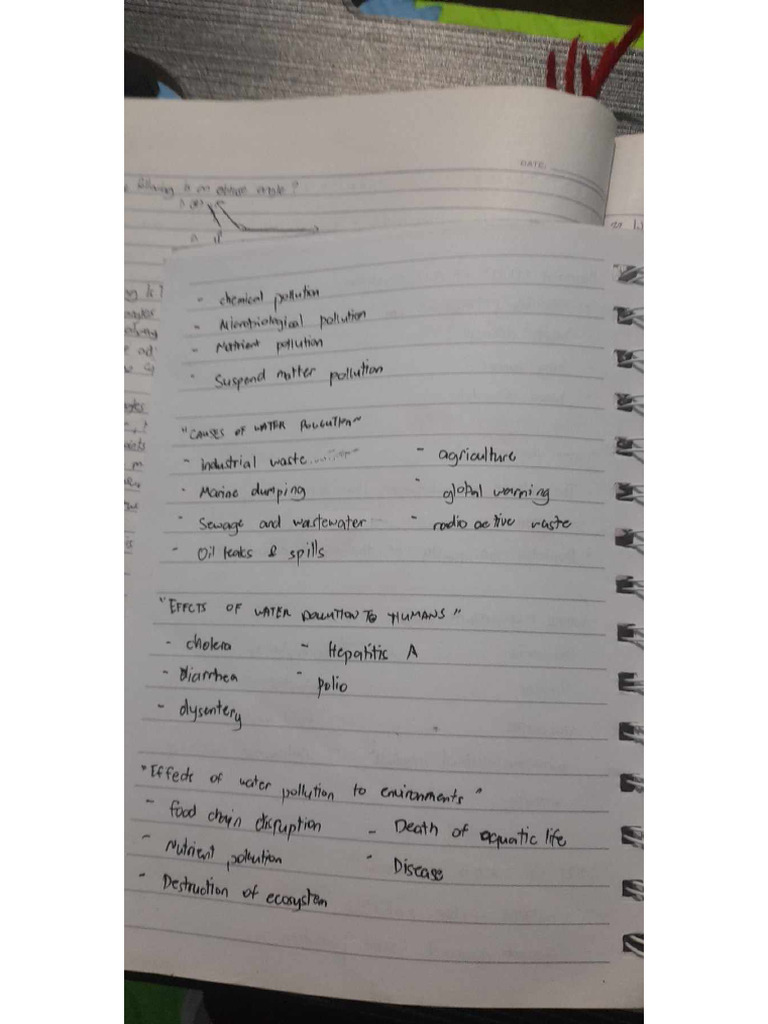 DATE:
following is an obtuse angle?
- chemical pollution
- Microbiological pollution
- Nutrient pollution
- Suspend matter pollution
"CAUSES OF WATER POLLUTION"
- industrial waste - agriculture
- Marine dumping - global warming
- Sewage and wastewater - radio active waste
- Oil leaks & spills
"EFFECTS OF WATER POLLUTION TO HUMANS"
- cholera - Hepatitis A
- diarrhea - polio
- dysentery
"Effects of water pollution to environments"
- food chain disruption - Death of aquatic life
- Nutrient pollution - Disease
- Destruction of ecosystem